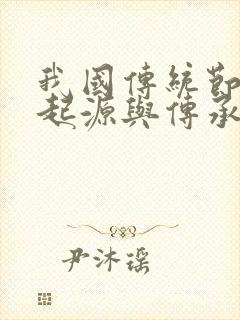 我國傳統節
起源與傳承
尹沐瑶